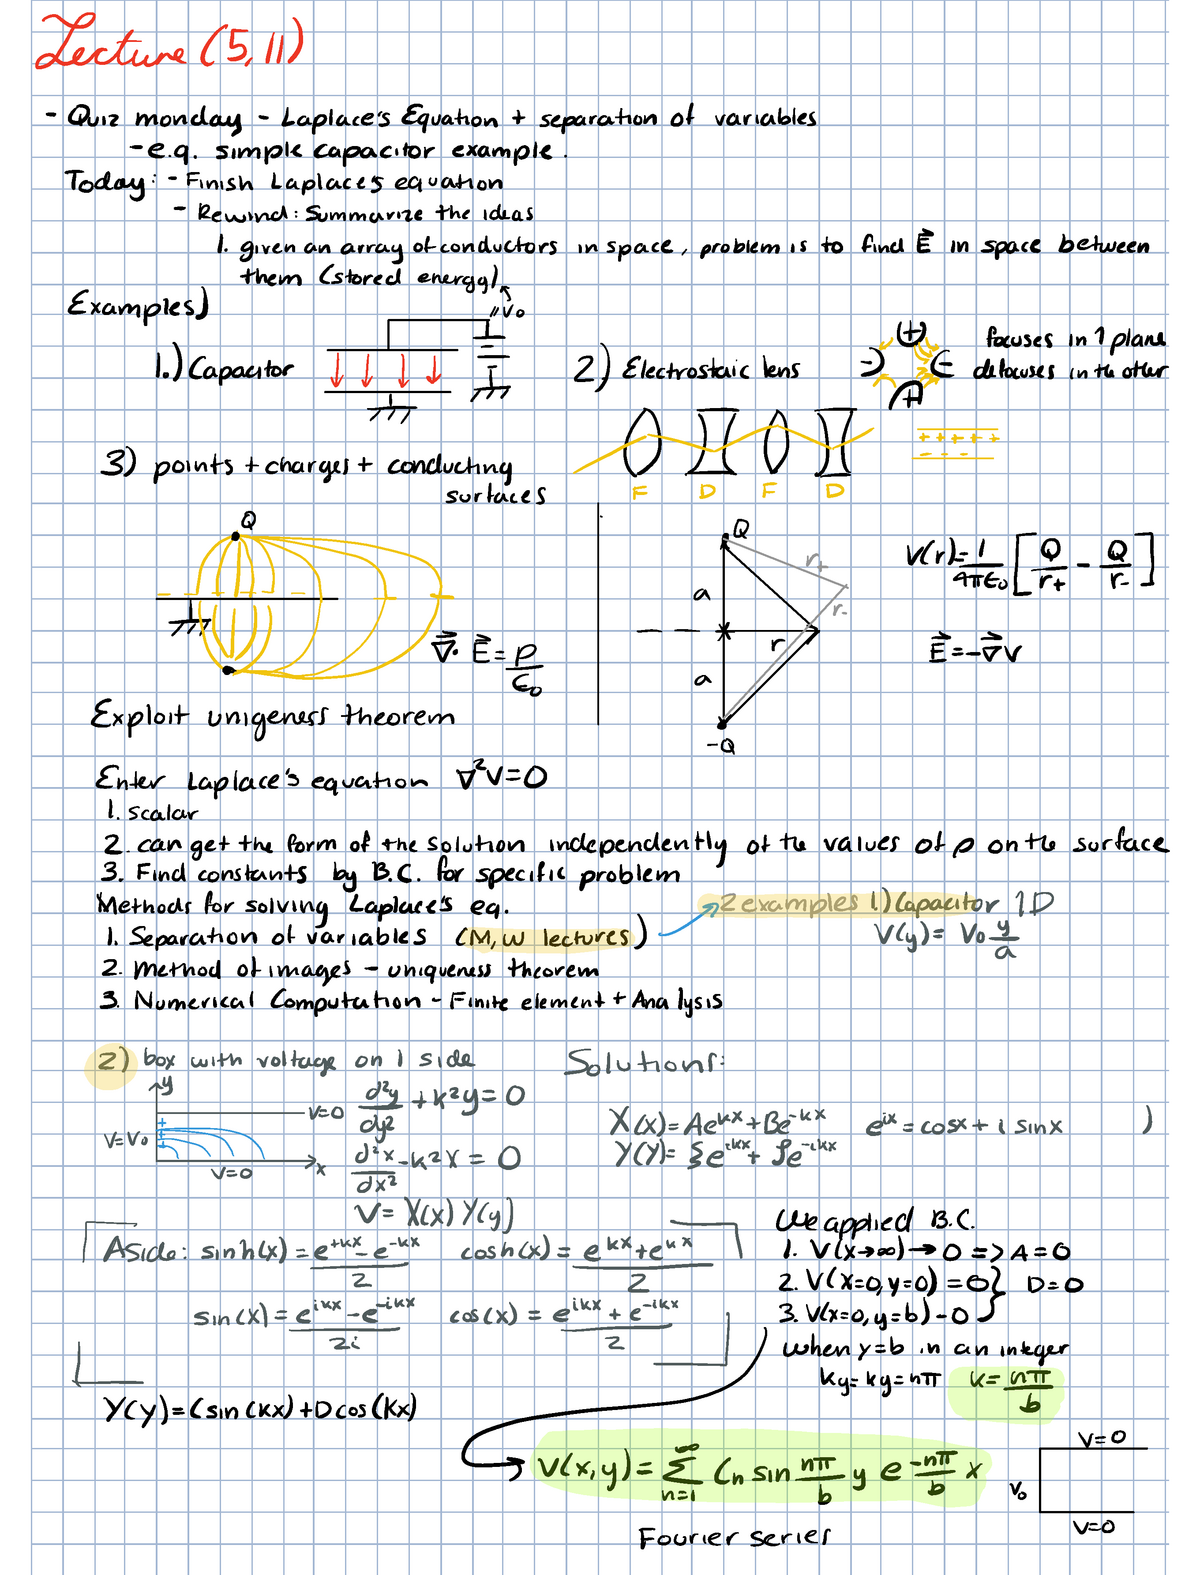 Lecture (5,11)
- Quiz monday - Laplace's Equation + separation of variables
- e.g. simple capacitor example.
Today: - Finish Laplaces equation
- Rewind: Summarize the ideas
1. given an array of conductors in space, problem is to find E⃗ in space between
them (stored energy)
Examples)
V₀
1.) Capacitor
2) Electrostaic lens
(+)
-)
(-
(+)
focuses in 1 plane
defocuses in the other
+ + + + +
- - -
F D F D
3) points + charges + conducting
surfaces
Q
∇⃗· E⃗ = ρ/ε₀
Q
r₊
a
r₋
r
a
-Q
V(r)= 1/4πε₀ [Q/r₊ - Q/r₋]
E⃗ = -∇⃗V
Exploit uniqeness theorem
Enter Laplace's equation ∇²V=0
1. scalar
2. can get the form of the solution independently of the values of ρ on the surface
3. Find constants by B.C. for specific problem
Methods for solving Laplace's eq.
1. Separation of variables (M,W lectures)
2 examples 1.) Capacitor 1D
V(y)= V₀ y/a
2. Method of images - uniqueness theorem
3. Numerical Computation - Finite element + Analysis
2) box with voltage on 1 side
y
V=V₀
V=0
V=0
x
d²y/dy² + k²y = 0
d²x/dx² - k²X = 0
V= X(x) Y(y)
Solutions:
X(x)= Ae^kx + Be^-kx
e^ix = cosx + i sinx )
Y(y)= ξe^ikx + ζe^-ikx
Aside: sinh(x) = e^+kx - e^-kx / 2
cosh(x) = e^kx + e^kx / 2
sin(x) = e^ikx - e^-ikx / 2i
cos(x) = e^ikx + e^-ikx / 2
Y(y)=Csin(kx)+Dcos(kx)
We applied B.C.
1. V(x→∞)→0 => A=0
2. V(x=0,y=0)=0} D=0
3. V(x=0,y=b)-0
when y=b in an integer
ky= ky=nπ k= nπ/b
V(x,y)= ∞ Σ n=1 Cn sin nπ/b y e^-nπ/b x
Fourier series
V=0
V₀
V=0